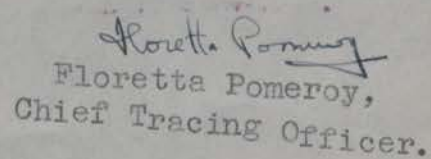 Floretta Pomeroy
Floretta Pomeroy,
Chief Tracing Officer.